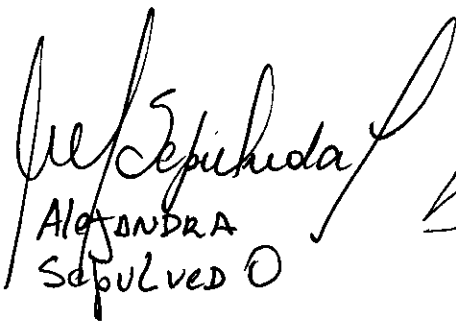 Sepulveda
AlejANDRA
SepuLveD O